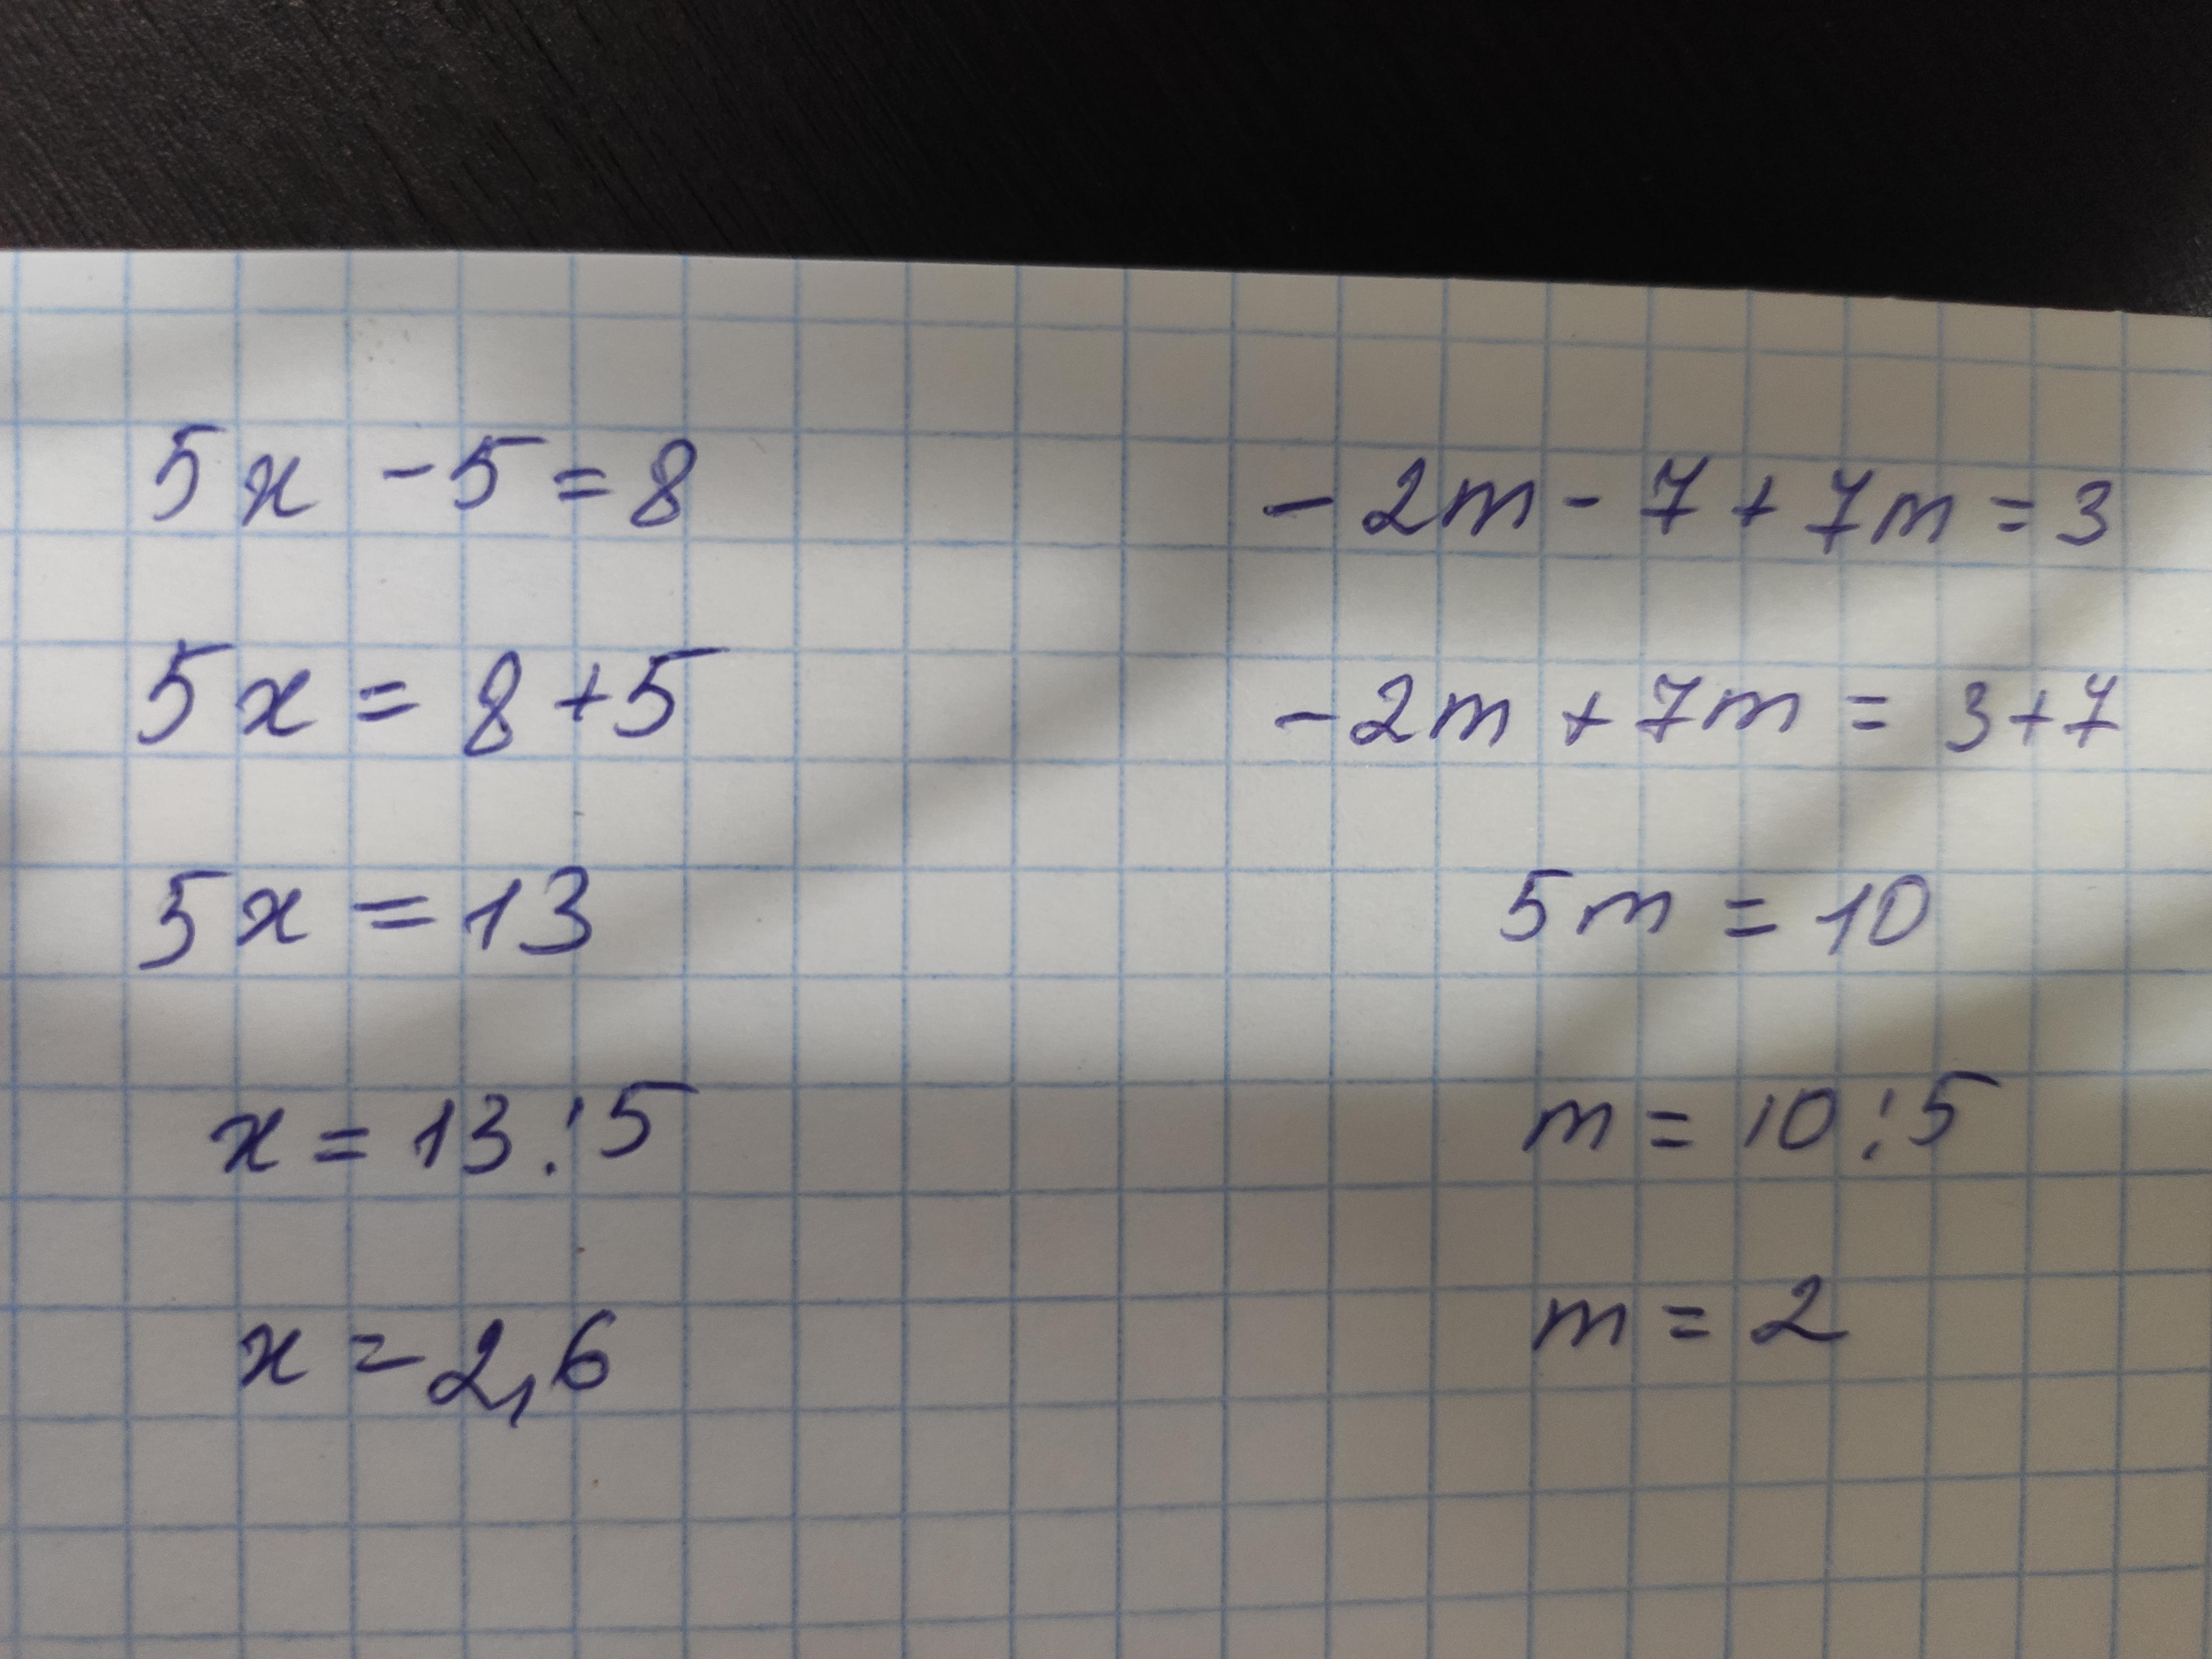 5x - 5 = 8
5x = 8 + 5
5x = 13
x = 13 : 5
x = 2,6
- 2m - 7 + 7m = 3
- 2m + 7m = 3 + 7
5m = 10
m = 10 : 5
m = 2